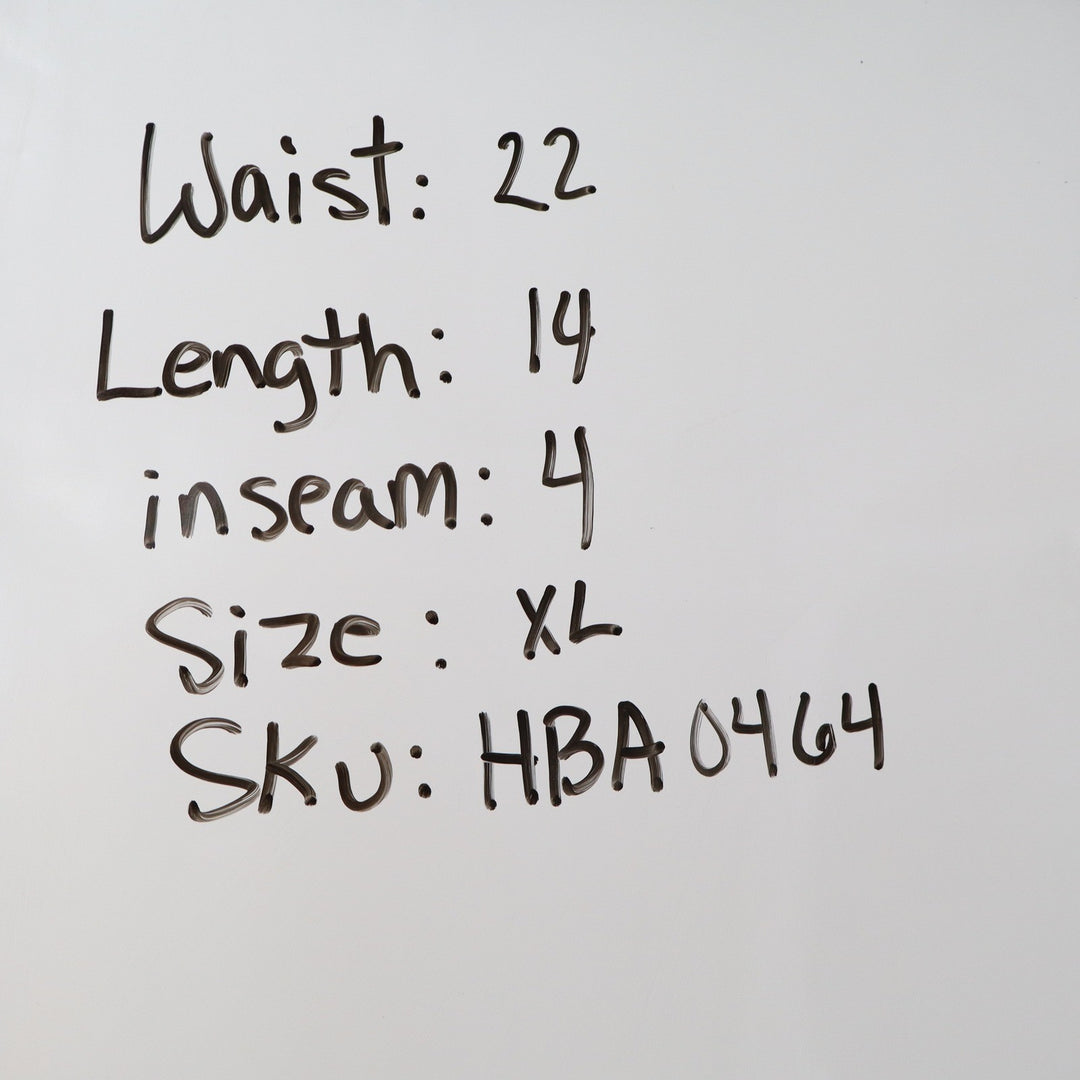 Waist: 22
Length: 14
inseam: 4
Size: XL
Sku: HBA0464